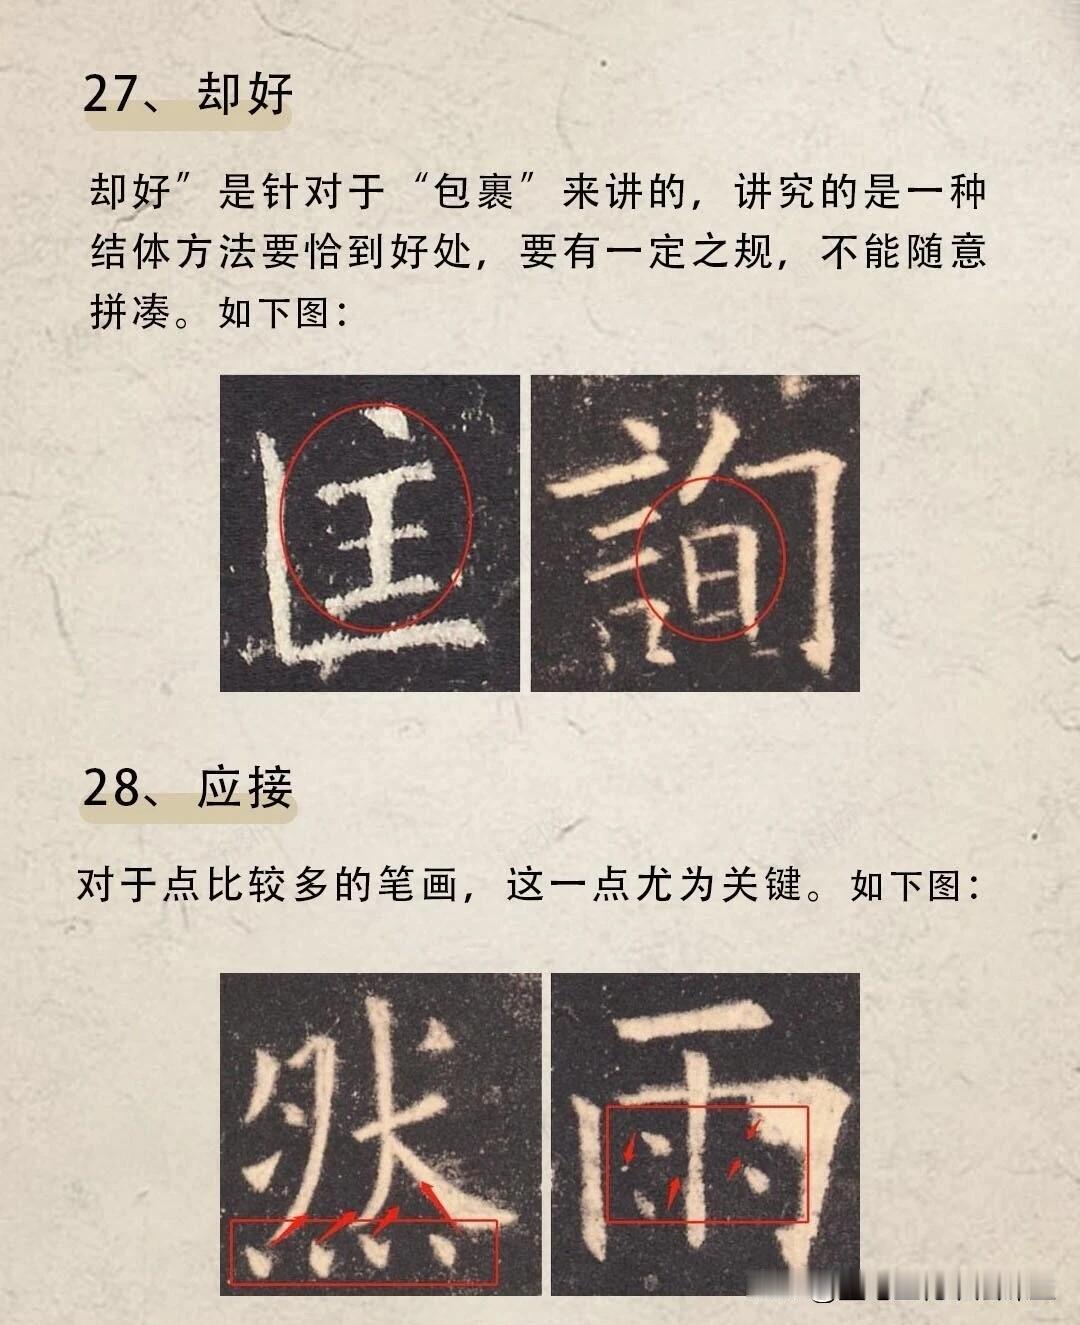 27、却好
却好”是针对于“包裹”来讲的，讲究的是一种
结体方法要恰到好处，要有一定之规，不能随意
拼凑。如下图：
匡 詢
28、应接
对于点比较多的笔画，这一点尤为关键。如下图：
然 雨